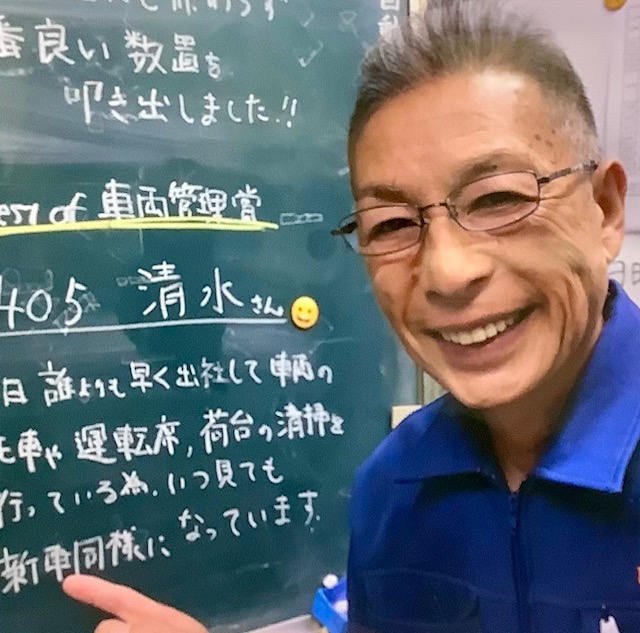 番良い数置を
叩き出しました!!
est of 車両管理賞
405 清水さん
日 誰よりも早く出社して 車両の
洗車や 運転席，荷台の清掃を
行っている為，いつ見ても
新車同様に なっています.